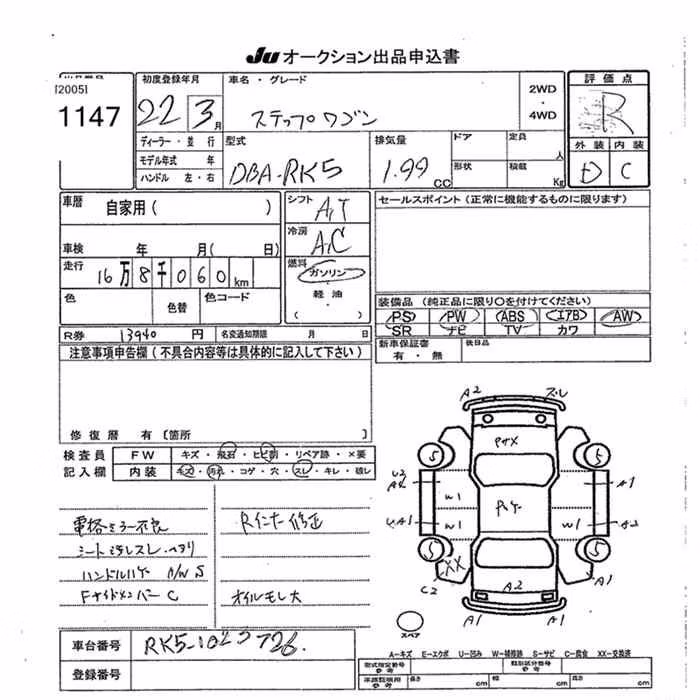 Ju オークション出品申込書
[2005]
1147
初度登録年月
22 3月
車名・グレード
ステップワゴン
2WD
・
4WD
評価点
R
外装 内装
D C
ディーラー・並行
モデル年式 年
ハンドル 左・右
型式
DBA-RK5
排気量
1.99 CC
ドア
定員 人
形状
積載 Kg
車歴
自家用( )
車検 年 月( 日)
走行
16万8千060km
色
色替
色コード
シフト
A,T
冷房
A,C
燃料
ガソリン
・
軽油
( )
セールスポイント(正常に機能するものに限ります)
装備品(純正品に限り〇を付けてください)
PS PW ABS エアB AW
SR ナビ TV カワ
R券 13940円
名変通知期限 月 日
新車保証書
有・無
後日品
注意事項申告欄(不具合内容等は具体的に記入して下さい)
修復歴 有〔箇所 〕
検査員
記入欄
FW キズ・飛石・ヒビ割・リペア跡・×要
内装 キズ・汚れ・コゲ・穴・スレ・キレ・破レ
電格ミラー不良
シート汚レスレ・ヘタリ
ハンドルハゲ A/W S
Fサイドメンバー C
Rインナー修正
オイルモレ大
A2 スレ
5 5
U2
A2
W1
A1
UA1
W1 W1
A2
5 5
XX
C2
A2
A1
A1 A1
スペア
A-キズ E-エクボ U-凹み W-補修跡 S-サビ C-腐食 XX-交換済
車台番号
RK5-1023726
登録番号
型式指定番号
参考
類別区分番号
参考
車庫証明用
参考
長さ cm
幅 cm
高さ cm